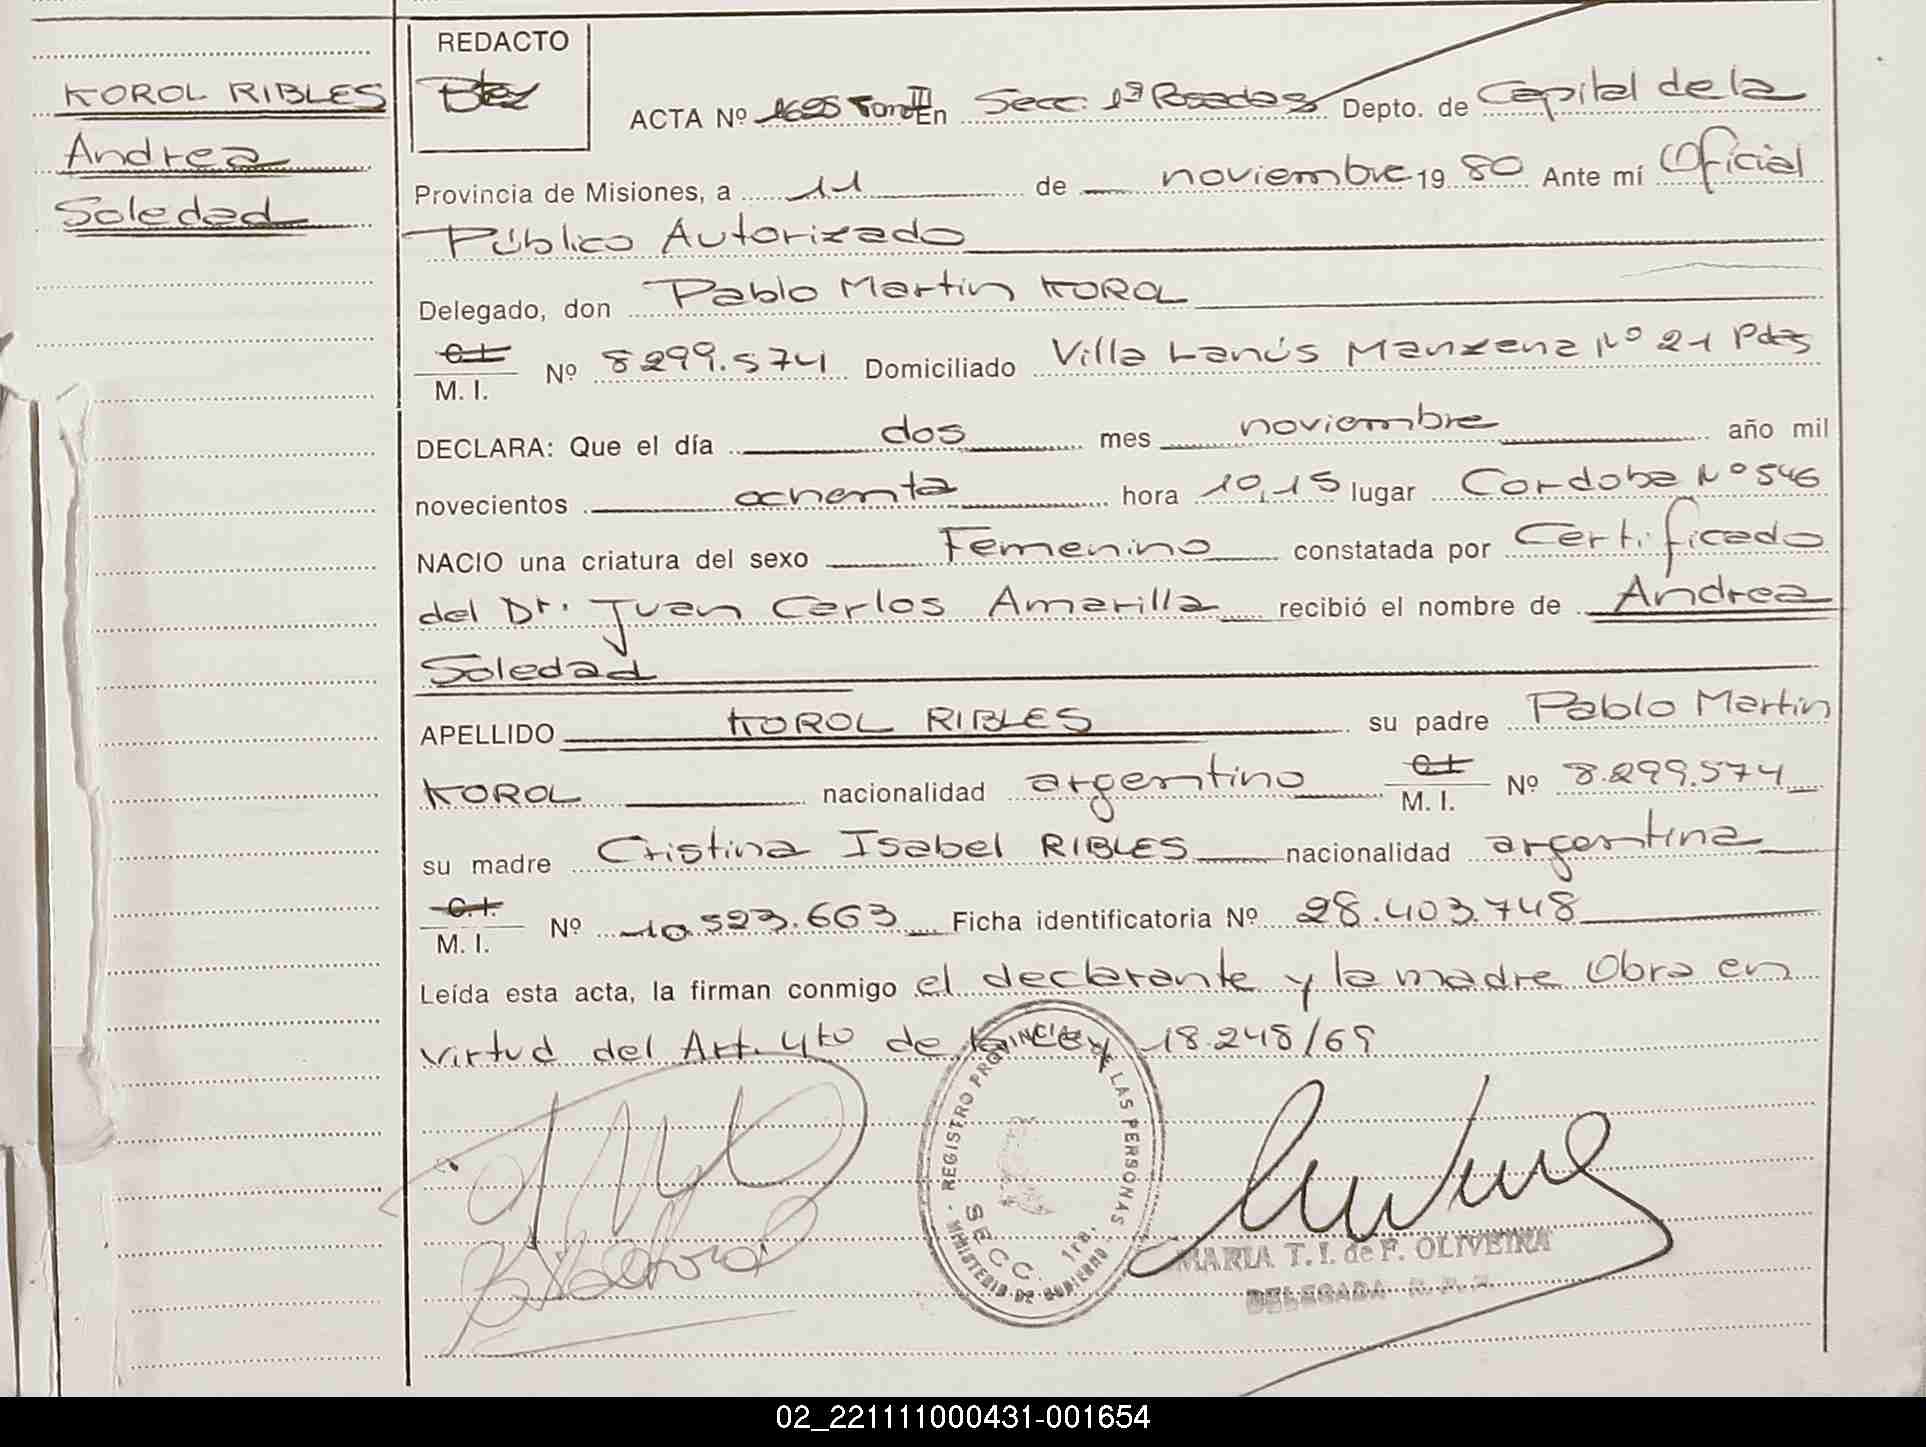 REDACTO
KOROL RIBLES
Andrea
Soledad
ACTA Nº 1695 Tomo III En Secc. 1ª Posadas Depto. de Capital de la
Provincia de Misiones, a 11 de noviembre 1980 Ante mí Oficial
Público Autorizado
Delegado, don Pablo Martin KOROL
C.I. M. I. Nº 8299.574 Domiciliado Villa Lanús Manzana Nº 21 Pdas
DECLARA: Que el día dos mes noviembre año mil
novecientos ochenta hora 10,15 lugar Cordoba Nº 546
NACIO una criatura del sexo Femenino constatada por Certificado
del Dr. Juan Carlos Amarilla recibió el nombre de Andrea
Soledad
APELLIDO KOROL RIBLES su padre Pablo Martin
KOROL nacionalidad argentino C.I. M. I. Nº 8.299.574
su madre Cristina Isabel RIBLES nacionalidad argentina
C.I. M. I. Nº 10.523.663 Ficha identificatoria Nº 28.403.748
Leída esta acta, la firman conmigo el declarante y la madre Obra en
virtud del Art. 4to de la Ley 18.248/69
REGISTRO PROVINCIAL DE LAS PERSONAS
SECC. 1ra.
MINISTERIO DE GOBIERNO
MARIA T. I. de F. OLIVEIRA
DELEGADA
02_221111000431-001654